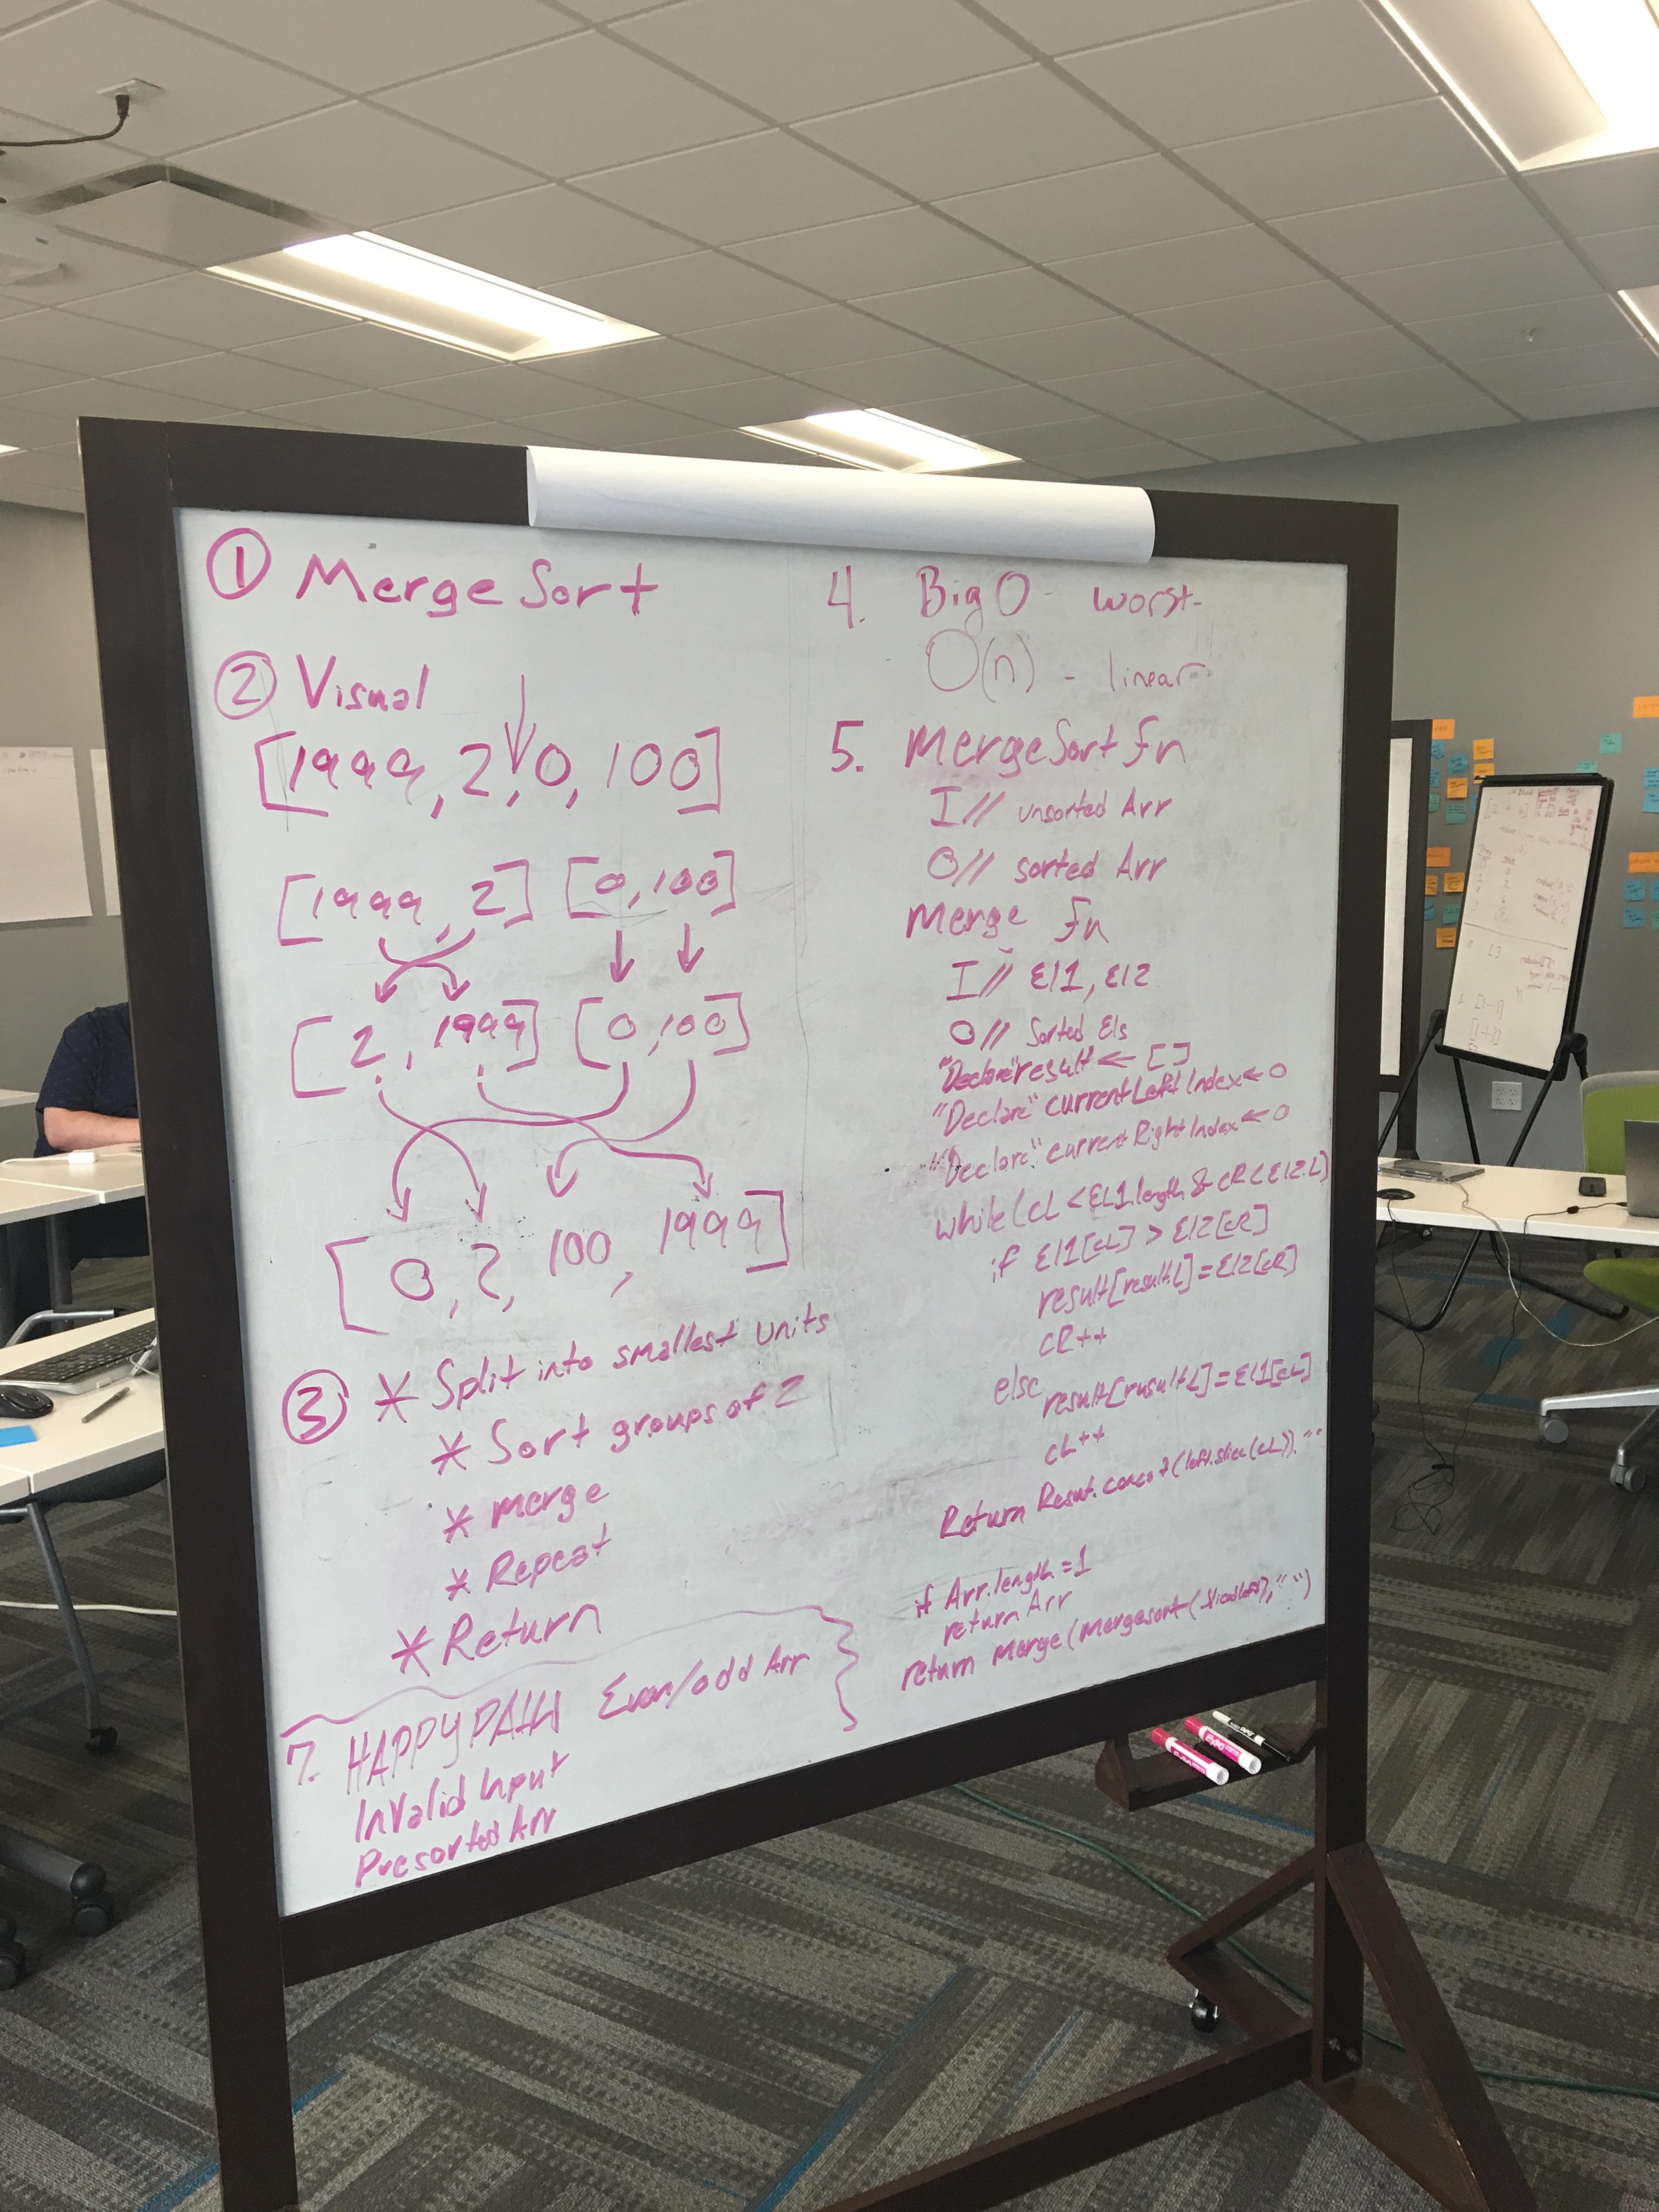 ① Merge Sort
② Visual
[1999, 2, 0, 100]
[1999, 2] [0, 100]
[2, 1999] [0, 100]
[0, 2, 100, 1999]
③ * Split into smallest units
* Sort groups of 2
* merge
* Repeat
* Return
7. HAPPY PATH Even/odd Arr
Invalid Input
Presorted Arr
4. Big O - worst-
O(n) - linear
5. MergeSort fn
I// unsorted Arr
O// sorted Arr
Merge fn
I// El1, El2
O// Sorted Els
"Declare" result ← []
"Declare" currentLeftIndex ← 0
"Declare" currentRightIndex ← 0
while (cL < EL1.length & cR < El2.L)
if El1[cL] > El2[cR]
result[result.L] = El2[cR]
cR++
else result[rusult.L] = El1[cL]
cL++
Return Result.concat(left.slice(cL)). " "
if Arr.length = 1
return Arr
return merge(mergesort( , " ")